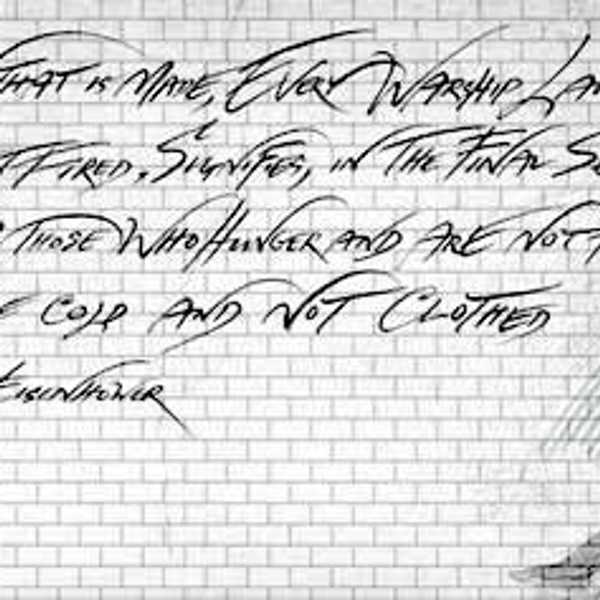 THAT IS MADE, EVERY WARSHIP LA
FIRED, SIGNIFIES, IN THE FINAL S
THOSE WHO HUNGER AND ARE NOT
COLD AND NOT CLOTHED
EISENHOWER